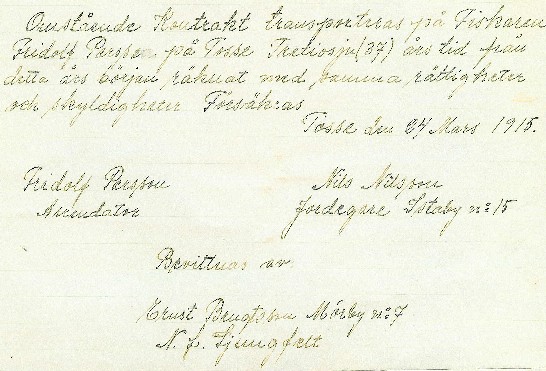 Omstående Kontrakt transporteras på Fiskaren
Fridolf Persson på Tosse Tretiosju (37) års tid från
detta års början räknat med samma rättigheter
och skyldigheter Försäkras
Tosse den 24 Mars 1915.
Fridolf Persson Nils Nilsson
Arendator Jordegare Istaby no 15
Bevittnas av
Ernst Bengtsson Mörby no 7
N. f. Ljungfelt